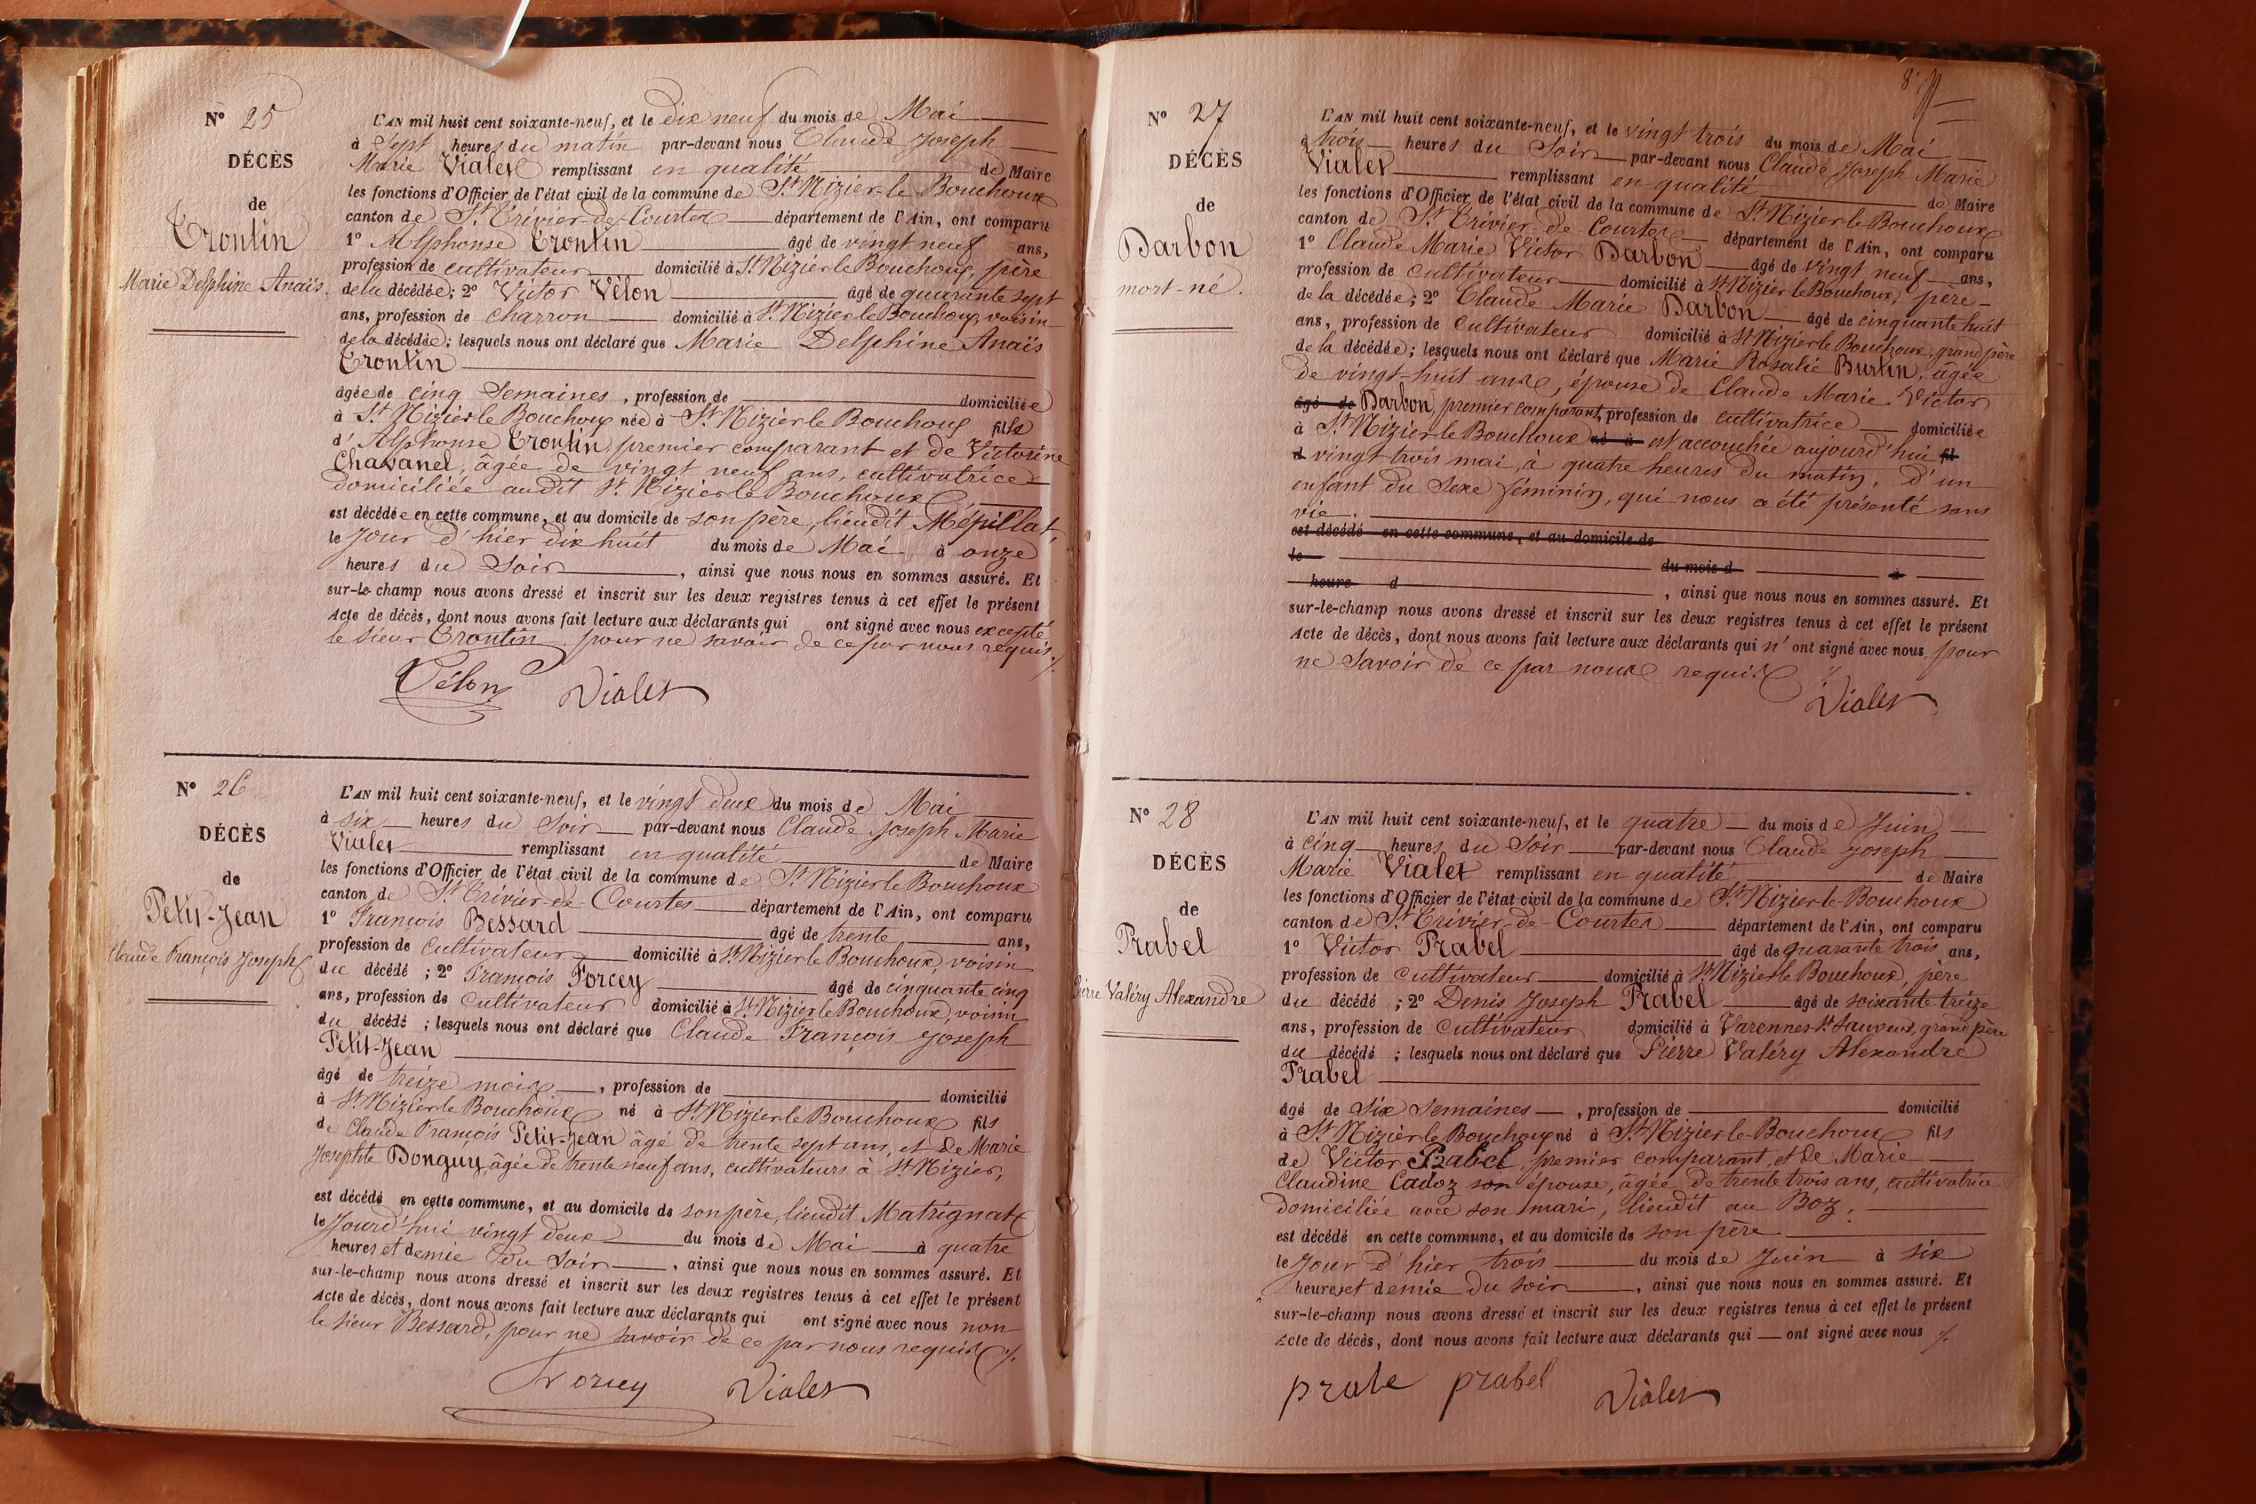 Nº 25
DÉCÈS
de
Trontin
Marie Delphine Anaïs.
L'AN mil huit cent soixante-neuf, et le dix neuf du mois de Mai
à Sept heures du matin par-devant nous Claude Joseph
Marie Vialet remplissant en qualité de Maire
les fonctions d'Officier de l'état civil de la commune de St Nizier-le Bouchoux
canton de St Trivier-de-Courtes département de l'Ain, ont comparu
1º Alphonse Trontin âgé de vingt neuf ans,
profession de cultivateur domicilié à St Nizier le Bouchoux, père
de la décédée; 2º Victor Vélon âgé de quarante sept
ans, profession de charron domicilié à St Nizier le Bouchoux, voisin
de la décédée; lesquels nous ont déclaré que Marie Delphine Anaïs
Trontin
âgée de cinq Semaines, profession de domiciliée
à St Nizier le Bouchoux née à St Nizier le Bouchoux fille
d'Alphonse Trontin, premier comparant et de Victorine
Chavanel, âgée de vingt neuf ans, cultivatrice
domiciliée audit St Nizier le Bouchoux
est décédée en cette commune, et au domicile de son père, lieudit Mépillat,
le Jour d'hier dix huit du mois de Mai à onze
heures du Soir, ainsi que nous nous en sommes assuré. Et
sur-le-champ nous avons dressé et inscrit sur les deux registres tenus à cet effet le présent
Acte de décès, dont nous avons fait lecture aux déclarants qui ont signé avec nous excepté
le sieur Trontin, pour ne savoir de ce par nous requis ./.
Vélon Vialet
Nº 26
DÉCÈS
de
Petit-Jean
Claude François Joseph
L'AN mil huit cent soixante-neuf, et le vingt deux du mois de Mai
à six heures du Soir par-devant nous Claude Joseph Marie
Vialet remplissant en qualité de Maire
les fonctions d'Officier de l'état civil de la commune de St Nizier le Bouchoux
canton de St Trivier-de-Courtes département de l'Ain, ont comparu
1º François Bessard âgé de trente ans,
profession de cultivateur domicilié à St Nizier le Bouchoux, voisin
du décédé; 2º François Forcey âgé de cinquante cinq
ans, profession de cultivateur domicilié à St Nizier le Bouchoux, voisin
du décédé; lesquels nous ont déclaré que Claude François Joseph
Petit-Jean
âgé de treize mois, profession de domicilié
à St Nizier le Bouchoux né à St Nizier le Bouchoux fils
de Claude François Petit-Jean âgé de trente sept ans, et de Marie
Josephte Donguy, âgée de trente neuf ans, cultivateurs à St Nizier,
est décédé en cette commune, et au domicile de son père, lieudit Matrignat
le Jourd'hui vingt deux du mois de Mai à quatre
heures et demie du Soir, ainsi que nous nous en sommes assuré. Et
sur-le-champ nous avons dressé et inscrit sur les deux registres tenus à cet effet le présent
Acte de décès, dont nous avons fait lecture aux déclarants qui ont signé avec nous non
le sieur Bessard, pour ne savoir de ce par nous requis ./.
Forcey Vialet
Nº 27
DÉCÈS
de
Darbon
mort-né.
L'AN mil huit cent soixante-neuf, et le vingt trois du mois de Mai
à trois heures du Soir par-devant nous Claude Joseph Marie
Vialet remplissant en qualité de Maire
les fonctions d'Officier de l'état civil de la commune de St Nizier le Bouchoux
canton de St Trivier-de-Courtes département de l'Ain, ont comparu
1º Claude Marie Victor Darbon âgé de vingt neuf ans,
profession de cultivateur domicilié à St Nizier le Bouchoux, père
de la décédée; 2º Claude Marie Darbon âgé de cinquante huit
ans, profession de Cultivateur domicilié à St Nizier le Bouchoux, grand père
de la décédée; lesquels nous ont déclaré que Marie Rosalie Burtin, âgée
de vingt-huit ans, épouse de Claude Marie Victor
âgé de Darbon, premier comparant, profession de cultivatrice domiciliée
à St Nizier le Bouchoux né à est accouchée aujourd'hui fil
d vingt trois mai, à quatre heures du matin, d'un
enfant du Sexe féminin, qui nous a été présenté sans
vie.
est décédé en cette commune, et au domicile de
le du mois d à
heure d, ainsi que nous nous en sommes assuré. Et
sur-le-champ nous avons dressé et inscrit sur les deux registres tenus à cet effet le présent
Acte de décès, dont nous avons fait lecture aux déclarants qui n'ont signé avec nous, pour
ne Savoir de ce par nous requis ./.
Vialet
Nº 28
DÉCÈS
de
Prabel
Pierre Valéry Alexandre
L'AN mil huit cent soixante-neuf, et le quatre du mois de Juin
à cinq heures du Soir par-devant nous Claude Joseph
Marie Vialet remplissant en qualité de Maire
les fonctions d'Officier de l'état civil de la commune de St Nizier-le-Bouchoux
canton de St Trivier-de-Courtes département de l'Ain, ont comparu
1º Victor Prabel âgé de quarante trois ans,
profession de cultivateur domicilié à St Nizier le Bouchoux, père
du décédé; 2º Denis Joseph Prabel âgé de soixante treize
ans, profession de Cultivateur domicilié à Varennes-St Sauveur, grand père
du décédé; lesquels nous ont déclaré que Pierre Valéry Alexandre
Prabel
âgé de Six Semaines, profession de domicilié
à St Nizier le Bouchoux né à St Nizier le Bouchoux fils
de Victor Prabel, premier comparant, et de Marie
Claudine Cadoz son épouse, âgée de trente trois ans, cultivatrice
domiciliée avec son mari, lieudit au Boz.
est décédé en cette commune, et au domicile de son père
le Jour d'hier trois du mois de Juin à six
heures et demie du soir, ainsi que nous nous en sommes assuré. Et
sur-le-champ nous avons dressé et inscrit sur les deux registres tenus à cet effet le présent
Acte de décès, dont nous avons fait lecture aux déclarants qui ont signé avec nous ./.
prabe prabel Vialet